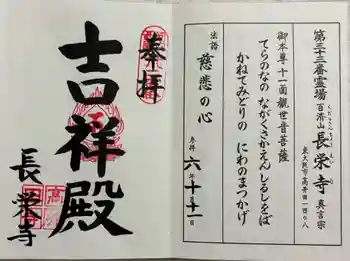 第三十三番霊場 百済山 長栄寺 真言宗
くだらさん ちょうえいじ
東大阪市高井田一四ノ八
御本尊 十一面観世音菩薩
てらのなの ながくさかえんしるしをば
かねてみどりの にわのまつかげ
法語 慈悲の心
参拝 六年十月十一日
奉拝
吉祥殿
長栄寺